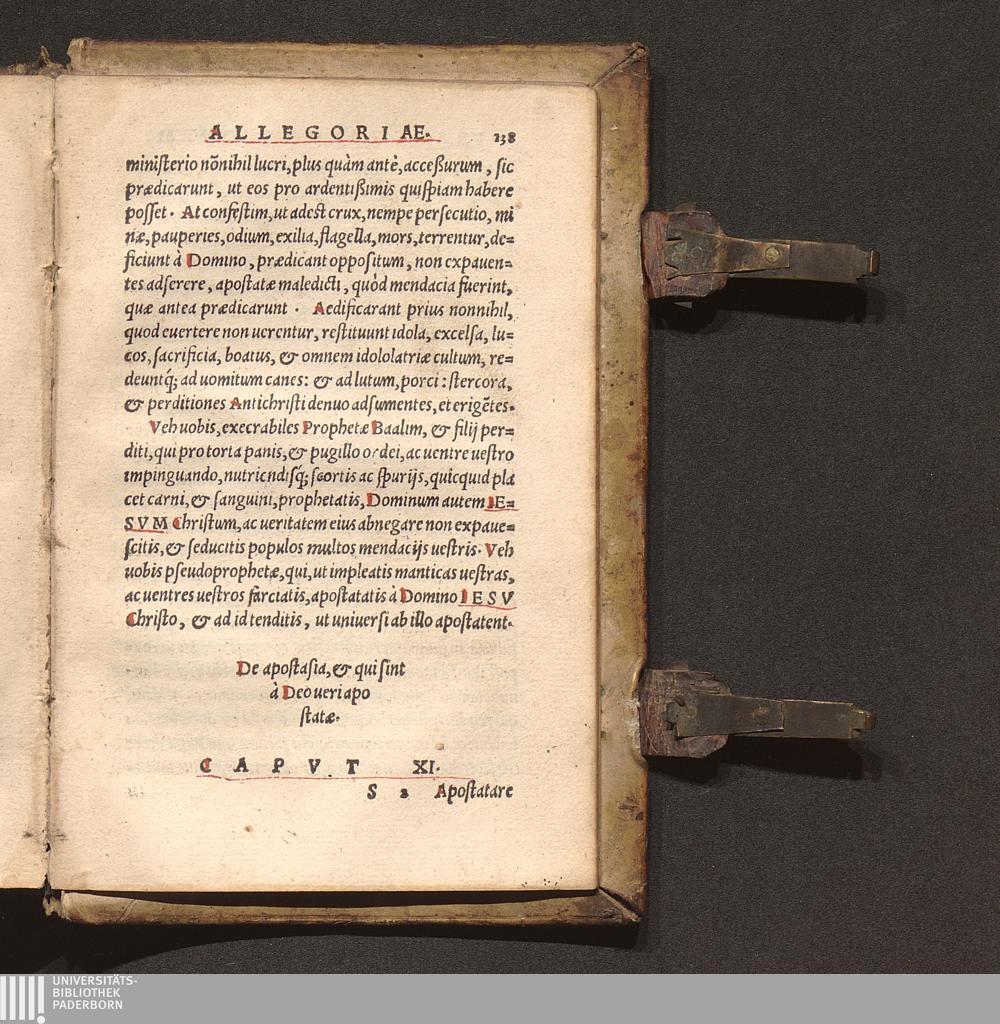 ALLEGORIAE. 138
ministerio nõnihil lucri, plus quàm antè, acceßurum, sic
prædicarunt, ut eos pro ardentißimis quispiam habere
posset. At confestim, ut adest crux, nempe persecutio, mi
næ, pauperies, odium, exilia, flagella, mors, terrentur, de=
ficiunt à Domino, prædicant oppositum, non expauen=
tes adserere, apostatæ maledicti, quòd mendacia fuerint,
quæ antea prædicarunt. Aedificarant prius nonnihil,
quod euertere non uerentur, restituunt idola, excelsa, lu=
cos, sacrificia, boatus, & omnem idololatriæ cultum, re=
deuntq́; ad uomitum canes: & ad lutum, porci: stercora,
& perditiones Antichristi denuo adsumentes, et erigẽtes.
Veh uobis, execrabiles Prophetæ Baalim, & filij per=
diti, qui pro torta panis, & pugillo ordei, ac uentre uestro
impinguando, nutriendisq́; scortis ac spurijs, quicquid pla
cet carni, & sanguini, prophetatis, Dominum autem IE=
SVM Christum, ac ueritatem eius abnegare non expaue=
scitis, & seducitis populos multos mendacijs uestris. Veh
uobis pseudoprophetæ, qui, ut impleatis manticas uestras,
ac uentres uestros farciatis, apostatatis à Domino IESV
Christo, & ad id tenditis, ut uniuersi ab illo apostatent.
De apostasia, & qui sint
à Deo ueri apo
statæ.
CAPVT XI.
S 2 Apostatare
UNIVERSITÄTS-
BIBLIOTHEK
PADERBORN